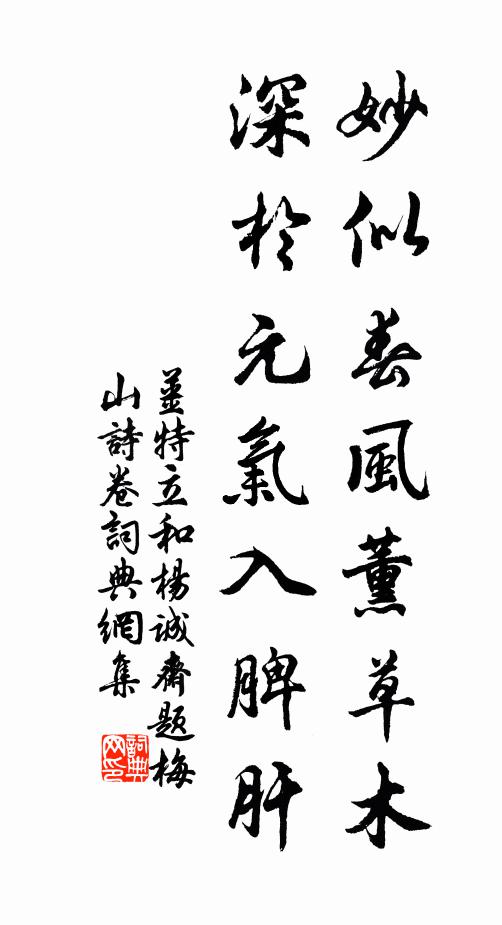 妙似春風薰草木
深於元氣入脾肝
姜特立和楊誠齋題梅
山詩卷詞典網集
詞典
网印